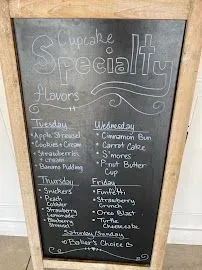 Cupcake
Specialty
Flavors
Tuesday
• Apple Streusel
• Cookies + Cream
• Strawberries
+ cream
• Banana Pudding
Wednesday
• Cinnamon Bun
• Carrot Cake
• S'mores
• P-nut Butter
Cup
Thursday
• Snickers
• Peach
Cobbler
• Strawberry
Lemonade
• Blueberry
Streusel
Friday
• Funfetti
• Strawberry
Crunch
• Oreo Blast
• Turtle
Cheesecake
Saturday/Sunday
Baker's Choice